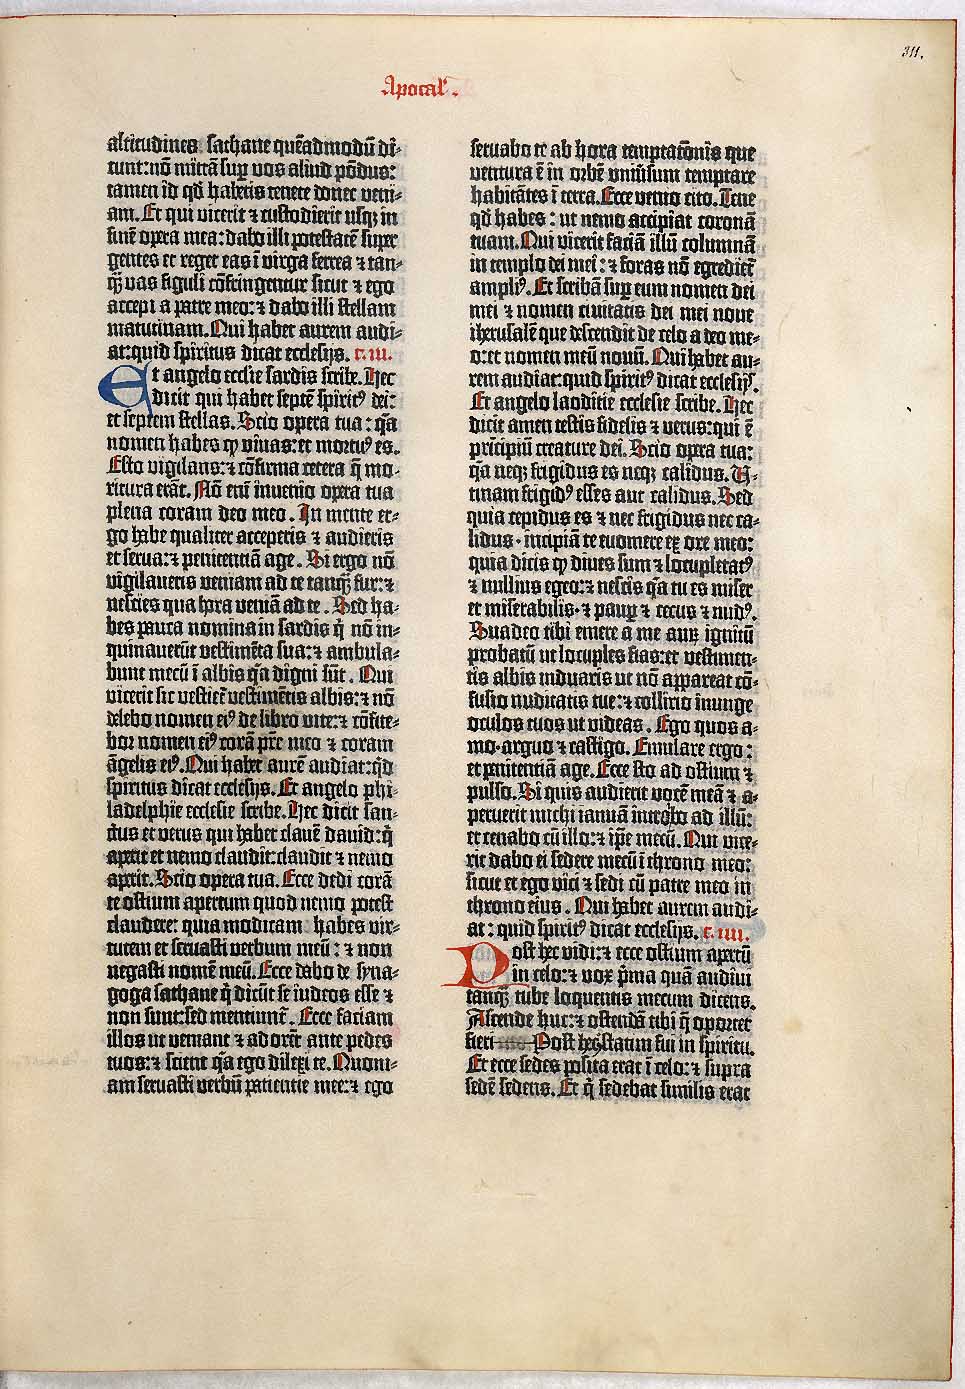 311.
Apocal'.
altitudines sathane quēadmodū di-
cunt: nō mittā sup vos aliud pōdus:
tamen id qd habetis tenete donec veni-
am. Et qui vicerit ⁊ custodierit usqꝫ in
finē opera mea: dabo illi potestatē super
gentes et reget eas ī virga ferrea ⁊ tan-
q̄ vas figuli cōfringentur sicut ⁊ ego
accepi a patre meo: ⁊ dabo illi stellam
matutinam. Qui habet aurem audi-
at: quid spiritus dicat ecclesijs. c. iii.
Et angelo ecclie sardis scribe. Hec
dicit qui habet septē spiritꝰ dei:
et septem stellas. Scio opera tua: q̄a
nomen habes ꝙ vivas: et mortuꝰ es.
Esto vigilans: ⁊ cōfirma cetera q̄ mo-
ritura erāt. Nō enī invenio opera tua
plena coram deo meo. In mente er-
go habe qualiter acceperis ⁊ audieris
et serva: ⁊ penitentiā age. Si ergo nō
vigilaveris veniam ad te tanqꝫ fur: ⁊
nescies qua hora veniā ad te. Sed ha-
bes pauca nomina in sardis q̄ nō in-
quinaverūt vestimēta sua: ⁊ ambula-
bunt mecū ī albis q̄a digni sūt. Qui
vicerit sic vestiet vestimētis albis: ⁊ nō
delebo nomen eiꝰ de libro vite: ⁊ cōfite-
bor nomen eiꝰ corā pr̄e meo ⁊ coram
āgelis eiꝰ. Qui habet aurē audiat: qd
spiritus dicat ecclesijs. Et angelo phi-
ladelphie ecclesie scribe. Hec dicit san-
ctus et verus qui habet clavē david: q̄
aperit et nemo claudit: claudit ⁊ nemo
aperit. Scio opera tua. Ecce dedi corā
te ostium apertum quod nemo potest
claudere: quia modicam habes vir-
tutem et servasti verbum meū: ⁊ non
negasti nomē meū. Ecce dabo de syna-
goga sathane q̄ dicūt se iudeos esse ⁊
non sunt: sed mentiunt̄. Ecce faciam
illos ut veniant ⁊ adorēt ante pedes
tuos: ⁊ scient q̄a ego dilexi te. Quoni-
am servasti verbū patientie mee: ⁊ ego
servabo te ab hora temptatōnis que
ventura ē in orbē universum temptare
habitātes ī terra. Ecce venio cito. Tene
qd habes: ut nemo accipiat coronā
tuam. Qui vicerit faciā illū columnā
in templo dei mei: ⁊ foras nō egrediet̄
ampliꝰ. Et scribā sup eum nomen dei
mei ⁊ nomen civitatis dei mei nove
iherusalē que descendit de celo a deo me-
o: et nomen meū novū. Qui habet au-
rem audiat: quid spiritꝰ dicat ecclesijs.
Et angelo laoditie ecclesie scribe. Hec
dicit amen testis fidelis ⁊ verus: qui ē
pricipiū creature dei. Scio opera tua:
q̄a neqꝫ frigidus es neqꝫ calidus. U-
tinam frigidꝰ esses aut calidus. Sed
quia tepidus es ⁊ nec frigidus nec ca-
lidus · incipiā te evomere ex ore meo:
quia dicis ꝙ dives sum ⁊ locupletatꝰ
⁊ nullius egeo: ⁊ nescis q̄a tu es miser
et miserabilis · ⁊ paup ⁊ cecus ⁊ nudꝰ.
Suadeo tibi emere a me auꝝ ignitū
probatū ut locuples fias: et vestimen-
tis albis induaris ut nō appareat cō-
fusio nuditatis tue: ⁊ collirio inunge
oculos tuos ut videas. Ego quos a-
mo · arguo ⁊ castigo. Emulare ergo:
et penitentiā age. Ecce sto ad ostium ⁊
pulso. Si quis audierit vocē meā ⁊ a-
peruerit michi ianuā introibo ad illū:
et cenabo cū illo: ⁊ ip̄e mecū. Qui vice-
rit dabo ei sedere mecū ī throno meo:
sicut et ego vici ⁊ sedi cū patre meo in
throno eius. Qui habet aurem audi-
at: quid spiritꝰ dicat ecclesijs. c. iiii.
Post hec vidi: ⁊ ecce ostium apertū
in celo: ⁊ vox p̄ma quā audivi
tanqꝫ tube loquentis mecum dicens.
Ascende huc: ⁊ ostendā tibi q̄ oportet
fieri Post hec statum fui in spiritu.
Et ecce sedes posita erat ī celo: ⁊ supra
sedē sedens. Et q̄ sedebat similis erat